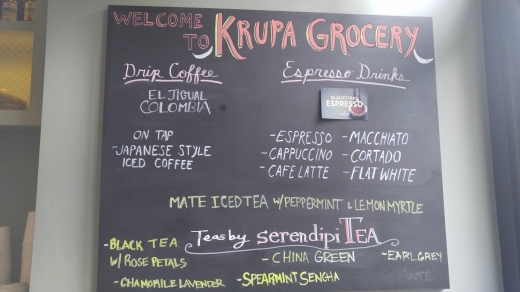 WELCOME TO KRUPA GROCERY
Drip Coffee
EL JIGUAL
COLOMBIA
ON TAP
-JAPANESE STYLE
ICED COFFEE
Espresso Drinks
BLACKSTRAP
ESPRESSO
-ESPRESSO -MACCHIATO
-CAPPUCCINO -CORTADO
-CAFE LATTE -FLAT WHITE
MATE ICED TEA W/ PEPPERMINT & LEMON MYRTLE
Teas by serendipiTEA
-BLACK TEA
W/ ROSE PETALS
-CHINA GREEN
-EARL GREY
-CHAMOMILE LAVENDER
-SPEARMINT SENCHA
MATE